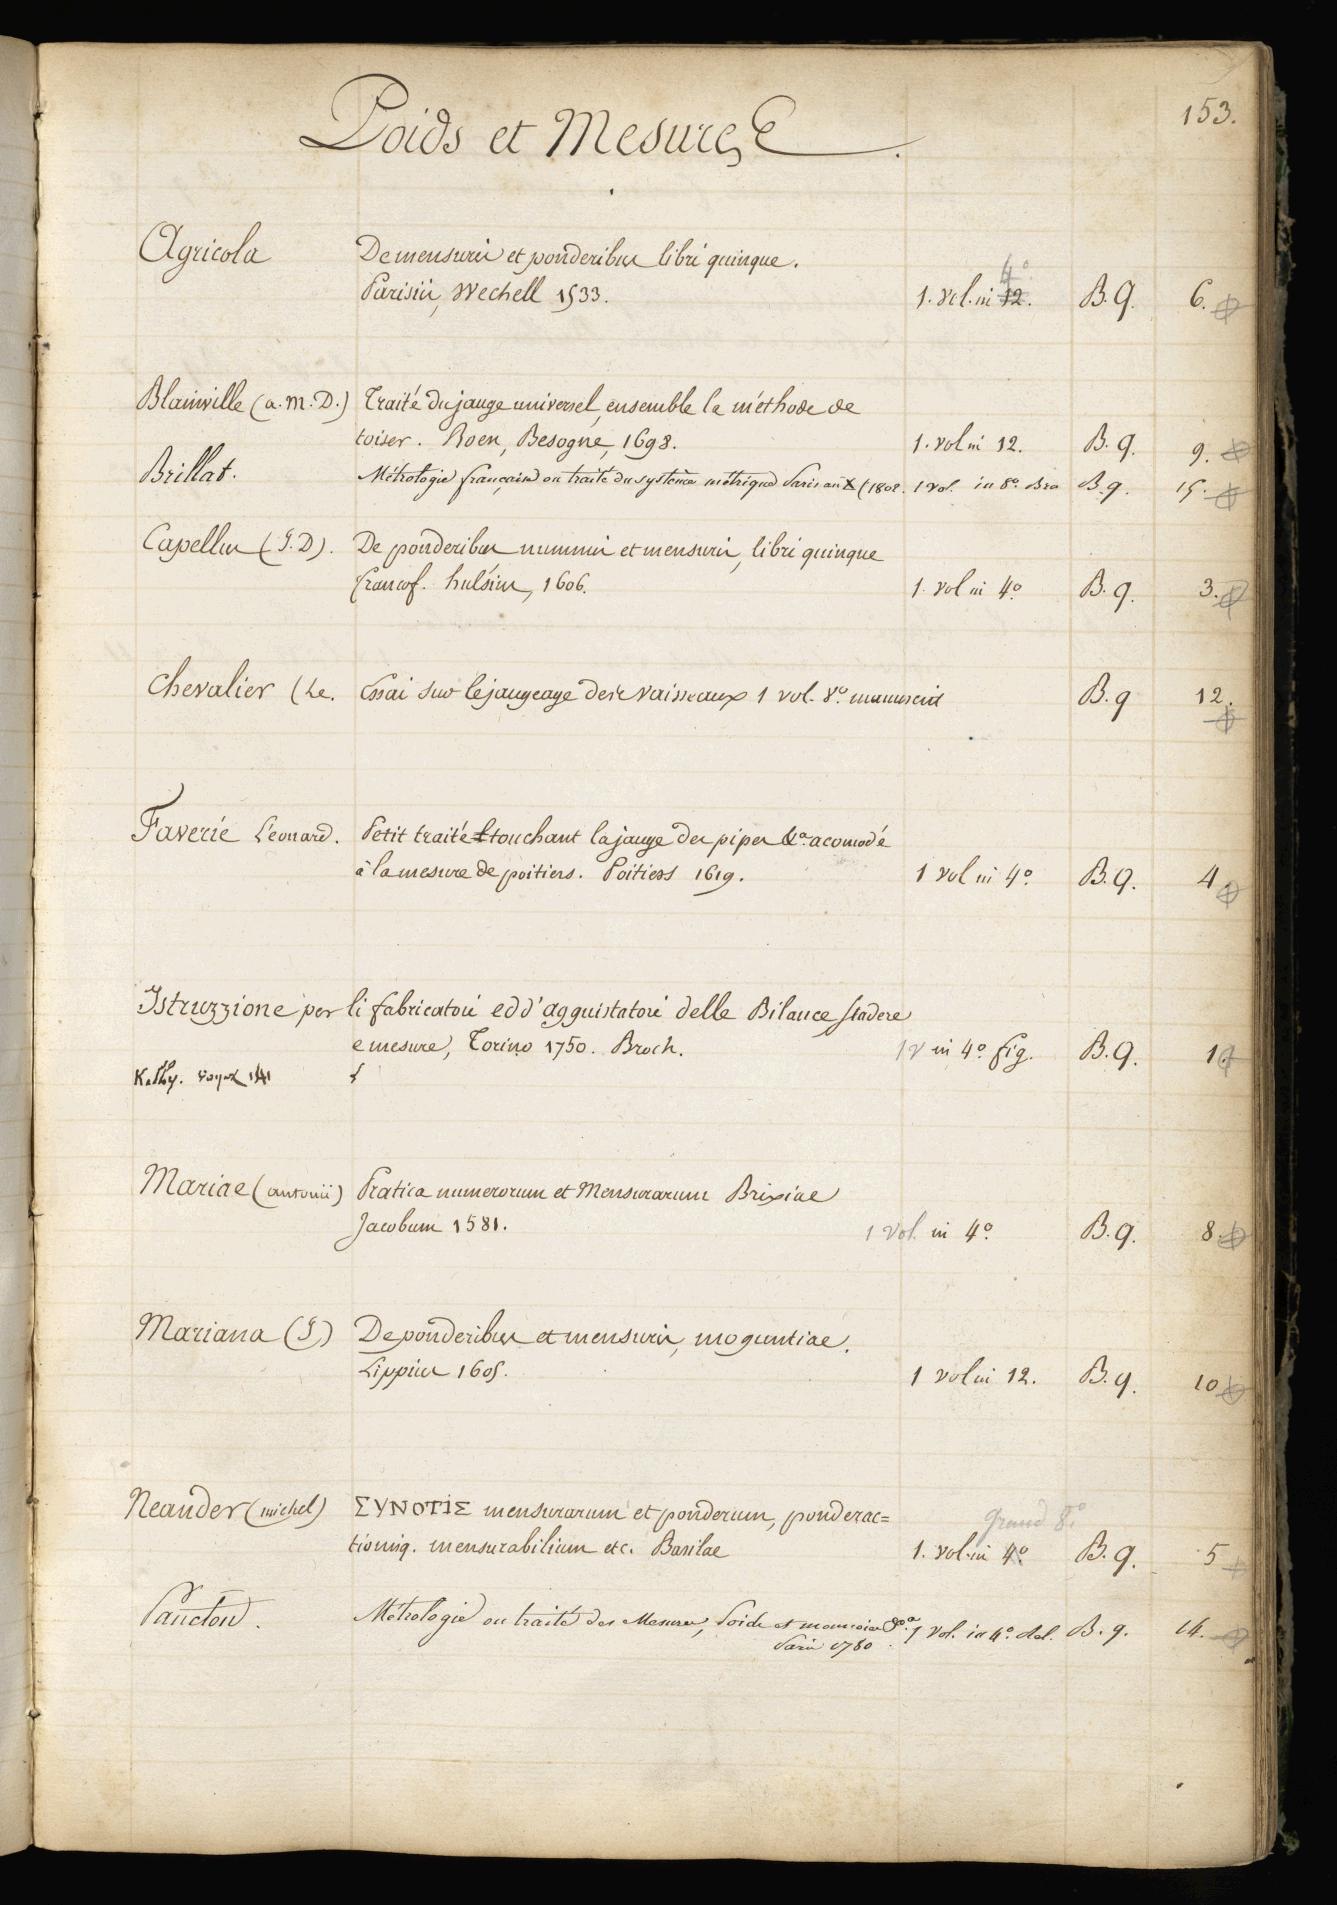 153.
Poids et Mesures
Agricola De mensuris et ponderibus libri quinque.
4º
Parisiis, Wechell 1533. 1. vol. in 12. B. q. 6.
Blainville (a. M. D.) Traité du jauge universel, ensemble la méthode de
toiser. Roen, Besogne, 1698. 1. vol in 12. B. q. 9.
Brillat. Métrologie française ou traité du système métrique Paris an X (1802. 1 vol. in 8º. Bro B. q. 15.
Capellus (J. D). De ponderibus nummis et mensuris, libri quinque
francof. hulsius, 1606. 1. vol in 4º. B. q. 3.
Chevalier (Le. Essai sur le jaugeage des vaisseaux 1 vol. 8º. manuscrit B. q 12.
Faverie Léonard. Petit traité touchant la jauge des pipes &ª. acomodé
à la mesure de poitiers. Poitiers 1619. 1 vol in 4º. B. q. 4.
Istruzzione per li fabricatori edd'aggiustatori delle Bilance stadere
e mesure, Torino 1750. Broch. 1 v in 4º. fig. B. q. 1.
Kelly. voyez
Mariae (antonii) Pratica numerorum et Mensurarum Brixiae
Jacobum 1581. 1 vol. in 4º. B. q. 8.
Mariana (J.) De ponderibus et mensuris, moguntiae.
Lippius 1605. 1 vol in 12. B. q. 10
Neander (michel) ΣΥΝΟΤΙΣ mensurarum et ponderum, ponderac=
grand 8º.
tionisq. mensurabilium etc. Basilae 1. vol. in 4º. B. q. 5
Paucton. Métrologie ou traité des Mesures, Poids et monnoies &ª. 1 vol. in 4º. rel. B. q. 14.
Paris 1780